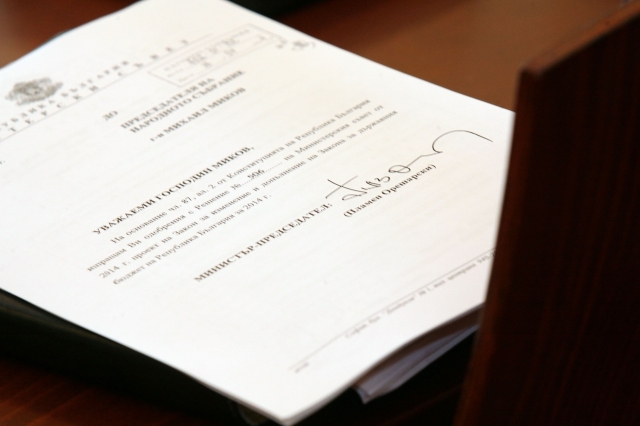 ДО
ПРЕДСЕДАТЕЛЯ НА
НАРОДНОТО СЪБРАНИЕ
Г-Н МИХАИЛ МИКОВ
УВАЖАЕМИ ГОСПОДИН МИКОВ,
На основание чл. 87, ал. 2 от Конституцията на Република България
изпращам Ви одобрения с Решение № 506 на Министерския съвет от
2014 г. проект на Закон за изменение и допълнение на Закона за държавния
бюджет на Република България за 2014 г.
МИНИСТЪР-ПРЕДСЕДАТЕЛ:
(Пламен Орешарски)